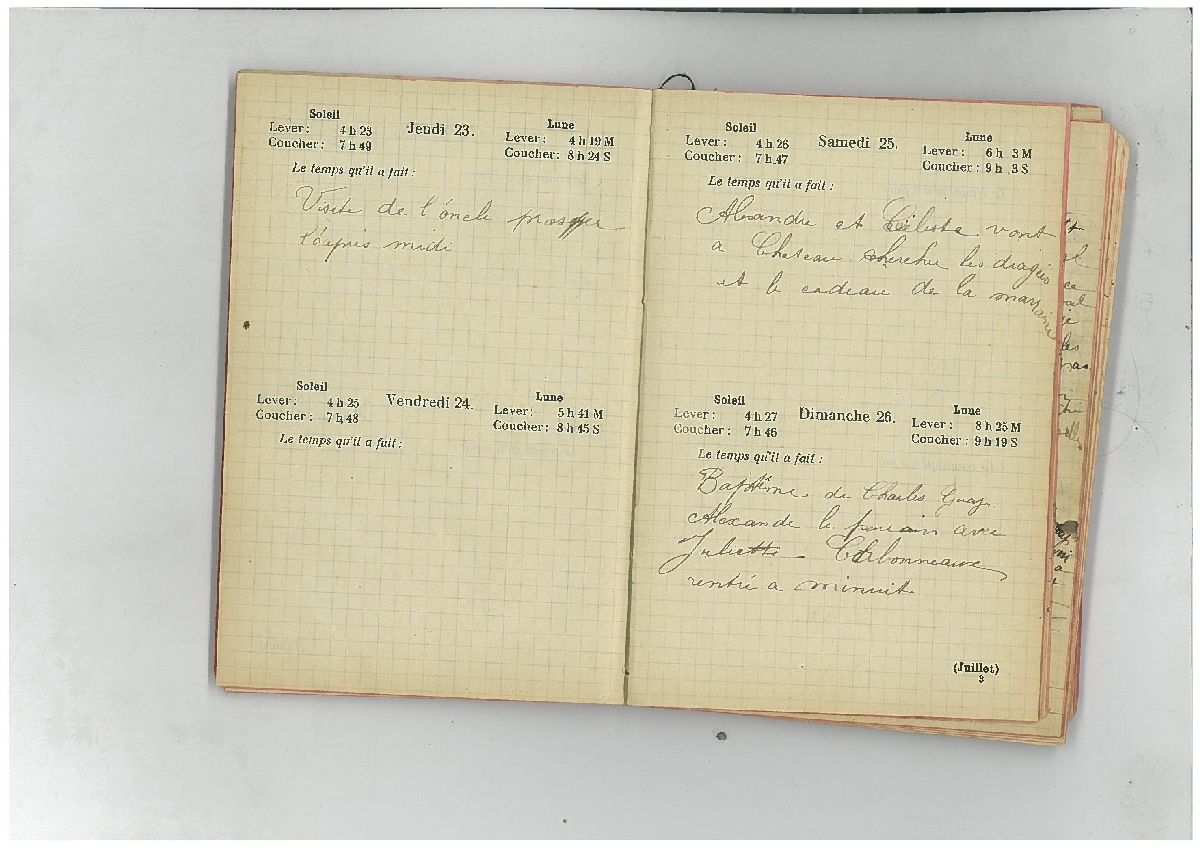 Soleil
Lever: 4 h 23
Coucher: 7 h 49
Jeudi 23.
Lune
Lever: 4 h 19 M
Coucher: 8 h 24 S
Le temps qu'il a fait :
Visite de l'oncle prosper
l'après midi
Soleil
Lever: 4 h 25
Coucher: 7 h 48
Vendredi 24.
Lune
Lever: 5 h 41 M
Coucher: 8 h 45 S
Le temps qu'il a fait :
Soleil
Lever: 4 h 26
Coucher: 7 h 47
Samedi 25.
Lune
Lever: 6 h 3 M
Coucher: 9 h 3 S
Le temps qu'il a fait :
Alexandre et Céleste vont
a Chateau chercher les dragées
et le cadeau de la marraine
Soleil
Lever: 4 h 27
Coucher: 7 h 46
Dimanche 26.
Lune
Lever: 8 h 25 M
Coucher: 9 h 19 S
Le temps qu'il a fait :
Baptême de Charles
Alexandre le avec
Juliette Carbonneaux
rentré a minuit
(Juillet)
3